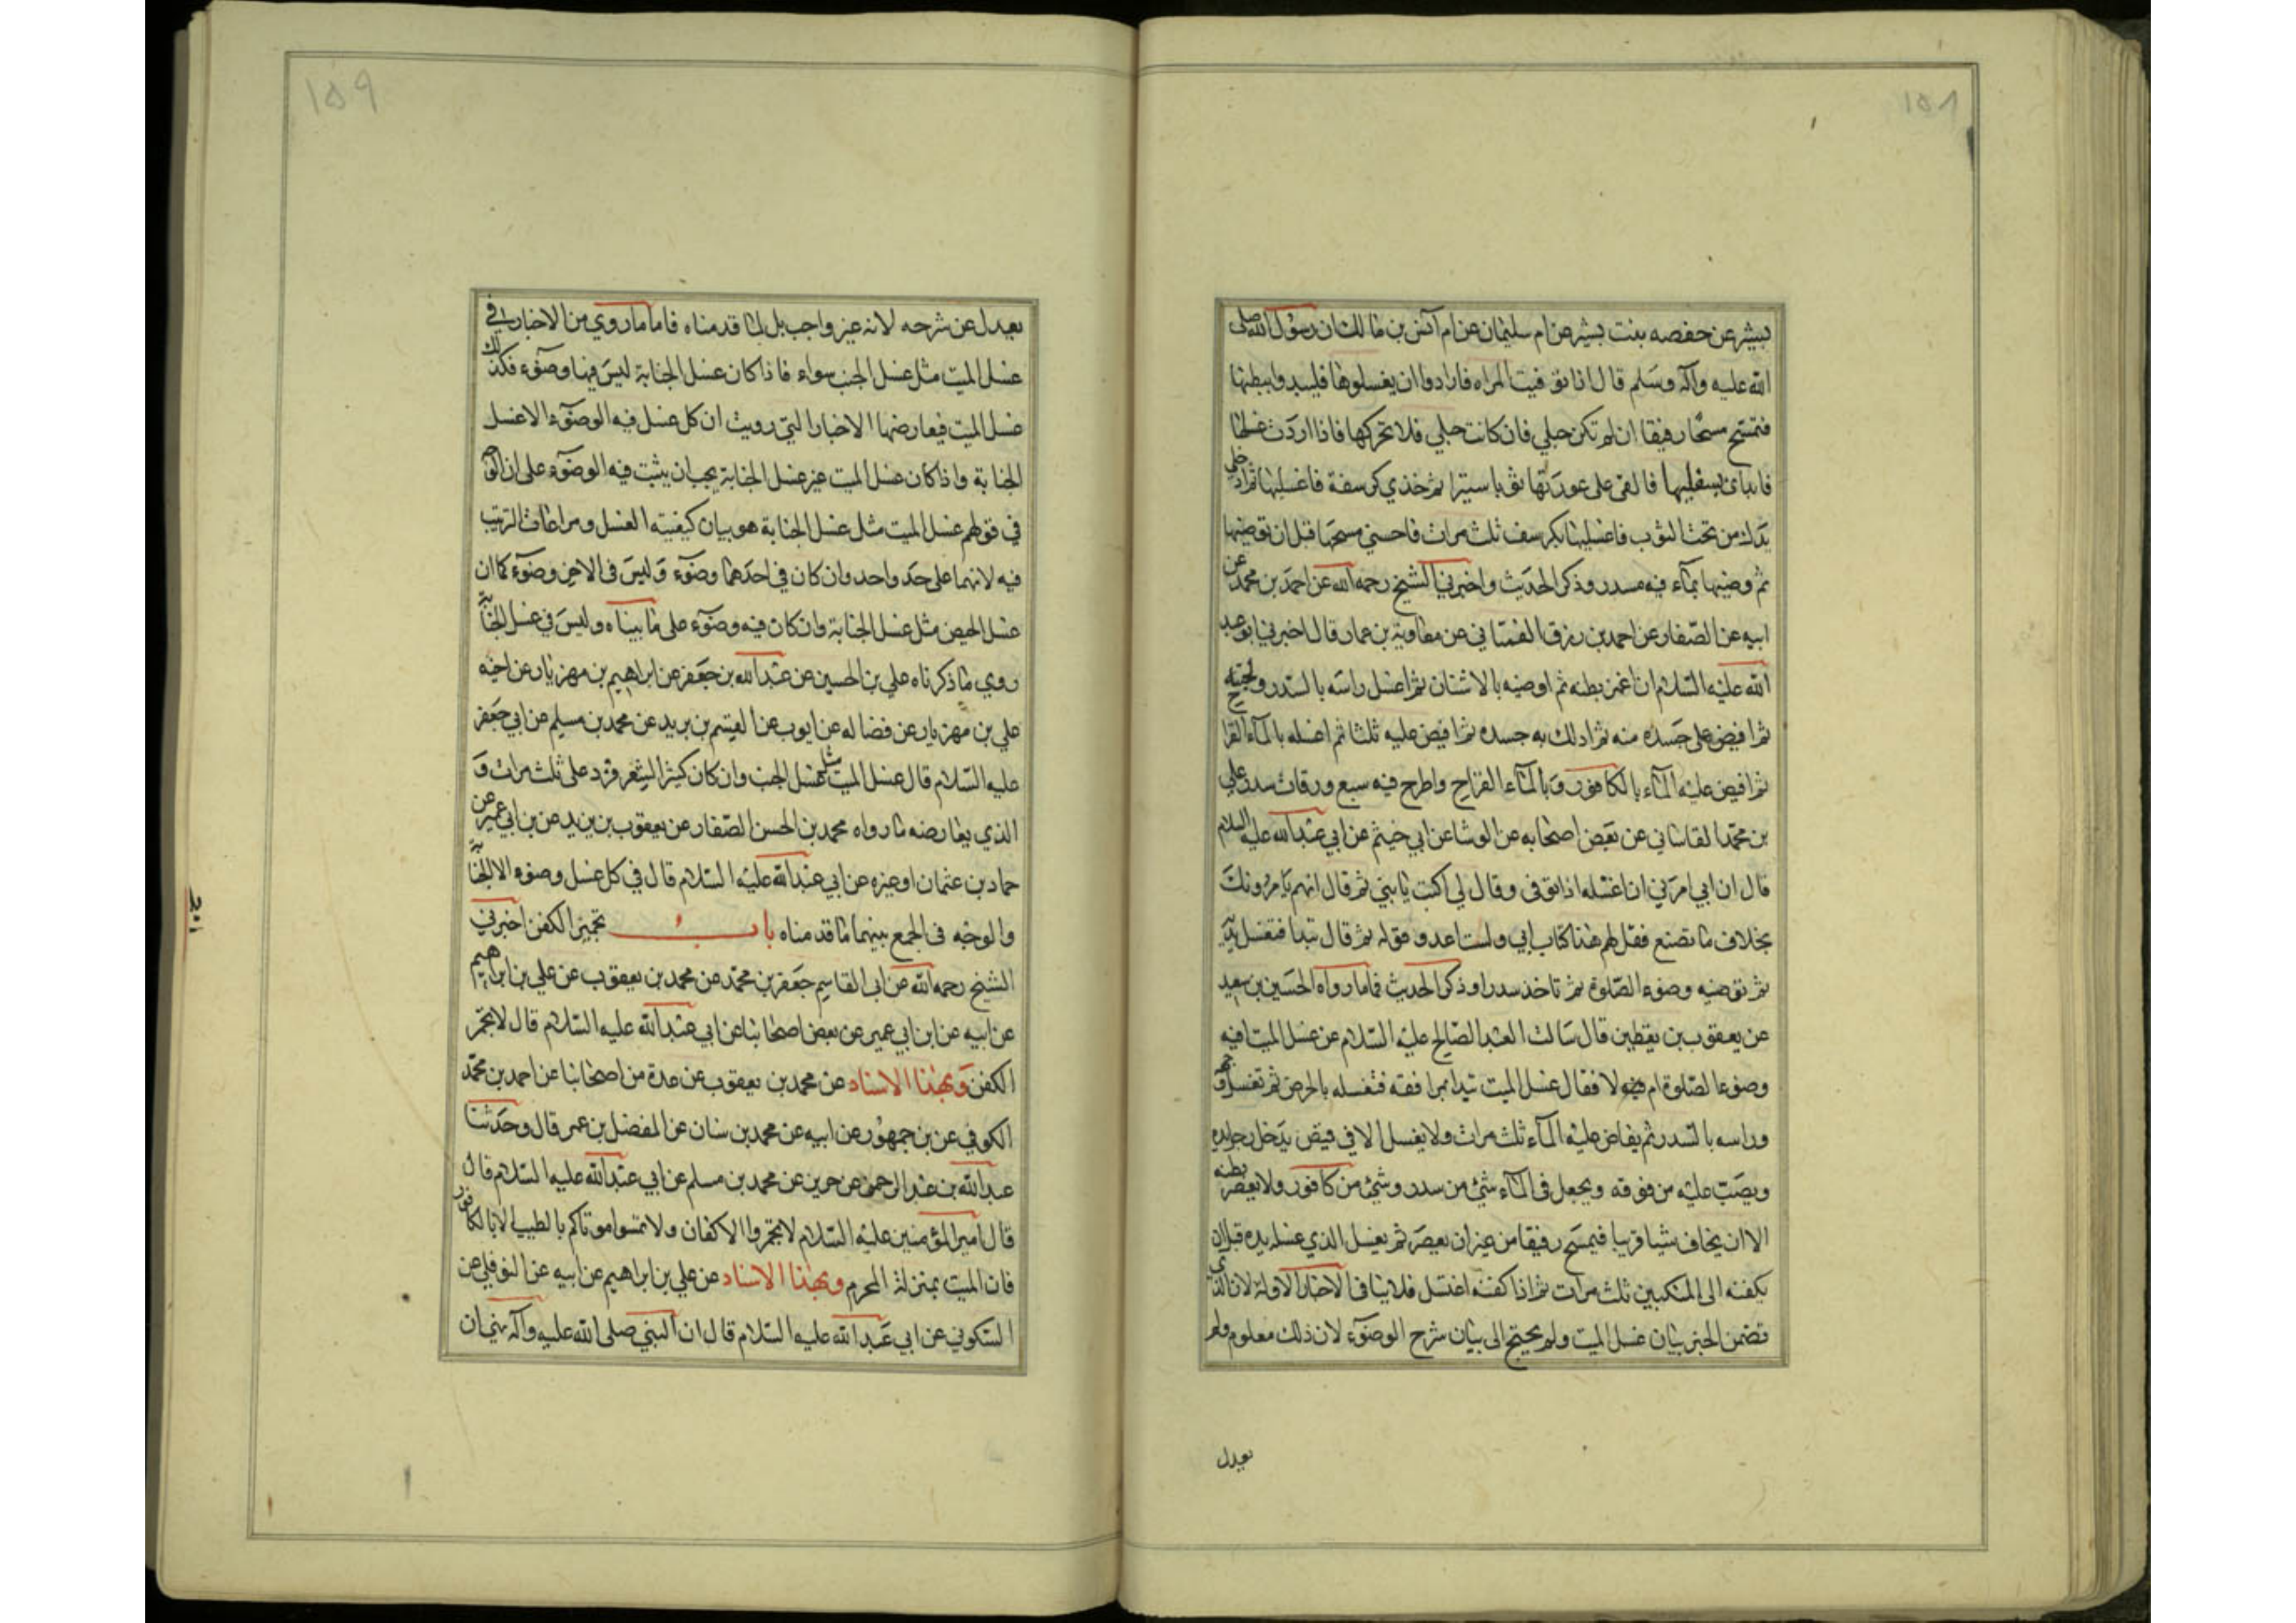 ١٥٨
ببشر عن حفصه بنت بشير عن ام سليمان عن ام انس بن مالك ان رسول الله صلى
الله عليه وآله وسلم قال اذا توفيت المراه فارادوا ان يغسلوها فليبدوا ببطنها
فتمسح مسحا رفيقا ان لم تكن حبلي فان كانت حبلي فلا تحركها فاذا اردت غسلها
فابداى بسفليها فالقى على عورتها ثوبا ستيرا ثم خذي كرسفة فاغسليها ثم ادخلي
يدك من تحت الثوب فاغسليها بكرسف ثلث مرات فاحسني مسحها قبل ان توضيها
ثم وضيها بمآء فيه سدر وذكر الحديث واخبرني الشيخ رحمه الله عن احمد بن محمد عن
ابيه عن الصفار عن احمد بن رزق الغمشاني عن معاوية بن عمار قال اخبرني ابو عبد
الله عليه السلام ان اغمز بطنه ثم اوضيه بالاشنان ثم اغسل راسه بالسدر ولحيته
ثم افيض على جسده منه ثم ادلك به جسده ثم افيض عليه ثلثا ثم اغسله بالمآء القراح
ثم افيض عليه المآء بالكافور وبالمآء القراح واطرح فيه سبع ورقات سدر على
بن محمد القاساني عن بعض اصحابه عن الوشا عن ابي خيثم عن ابي عبد الله عليه السلام
قال ان ابي امرني ان اغسله اذا توفى وقال لي اكتب يا بني ثم قال انهم يامرونك
بخلاف ما تصنع فقل لهم هذا كتاب ابي ولست اعدو قوله ثم قال تبدا فتغسل يديه
ثم توضيه وضوء الصلوة ثم تاخذ سدرا وذكر الحديث فاما رواه الحسين بن سعيد
عن يعقوب بن يقطين قال سالت العبد الصالح عليه السلام عن غسل الميت افيه
وضوء الصلوة ام لا فقال غسل الميت تبدا بمرافقه فتغسله بالحرض ثم تغسل وجهه
وراسه بالسدر ثم يفاض عليه المآء ثلث مرات ولا يغسل الا في قميص يدخل رجل يده
ويصب عليه من فوقه ويجعل في المآء شئ من سدر وشئ من كافور ولا يعصر بطنه
الا ان يخاف شيا قريبا فيمسح رفيقا من غير ان يعصر ثم يغسل الذي غسله يده قبل ان
يكفنه الى المنكبين ثلث مرات ثم اذا كفنه اغتسل فلا ينافى الاخبار الاولة لان الذي
تضمن الخبر بيان غسل الميت ولم يحتج الى بيان شرح الوضوء لان ذلك معلوم ولم
يعدل
١٥٩
يعدل عن شرحه لانه غير واجب بل لما قدمناه فاما ماروي من الاخبار في
غسل الميت مثل غسل الجنب سواء فاذا كان غسل الجنابة ليس فيها وضوء فكذلك
غسل الميت فيعارضها الاخبار التي رويت ان كل غسل فيه الوضوء الا غسل
الجنابة واذا كان غسل الميت غير غسل الجنابة يجب ان يثبت فيه الوضوء على ان الوجه
في قولهم غسل الميت مثل غسل الجنابة هو بيان كيفيته الغسل ومراعات الترتيب
فيه لانهما على حد واحد وان كان في احدهما وضوء وليس في الاخر وضوء كما ان
غسل الحيض مثل غسل الجنابة وان كان فيه وضوء على ما بيناه وليس في غسل الجنابة
روي ما ذكرناه علي بن الحسين عن عبد الله بن جعفر عن ابراهيم بن مهزيار عن اخيه
علي بن مهزيار عن فضاله عن ايوب عن القيسم بن بريد عن محمد بن مسلم عن ابي جعفر
عليه السلام قال غسل الميت مثل غسل الجنب وان كان كثير الشعر فزد على ثلث مرات و
الذي يعارضه ما رواه محمد بن الحسن الصفار عن يعقوب بن يزيد عن بن ابي عمير عن
حماد بن عثمان او غيره عن ابي عبد الله عليه السلام قال في كل غسل وضوء الا الجنابة
والوجه في الجمع بينهما ما قدمناه باب تجمير الكفن اخبرني
الشيخ رحمه الله عن ابى القاسم جعفر بن محمد عن محمد بن يعقوب عن علي بن ابراهيم
عن ابيه عن ابن ابي عمير عن بعض اصحابنا عن ابي عبد الله عليه السلام قال لا يجمر
الكفن وبهذا الاسناد عن محمد بن يعقوب عن عدة من اصحابنا عن احمد بن محمد
الكوفي عن بن جمهور عن ابيه عن محمد بن سنان عن المفضل بن عمر قال وحدثنا
عبد الله بن عبد الرحمن عن حريز عن محمد بن مسلم عن ابي عبد الله عليه السلام قال
قال امير المؤمنين عليه السلام لا تجمروا الاكفان ولا تمسوا موتاكم بالطيب الا بالكافور
فان الميت بمنزلة المحرم وبهذا الاسناد عن علي بن ابراهيم عن ابيه عن النوفلي عن
السكوني عن ابي عبد الله عليه السلام قال ان النبي صلى الله عليه وآله نهى ان